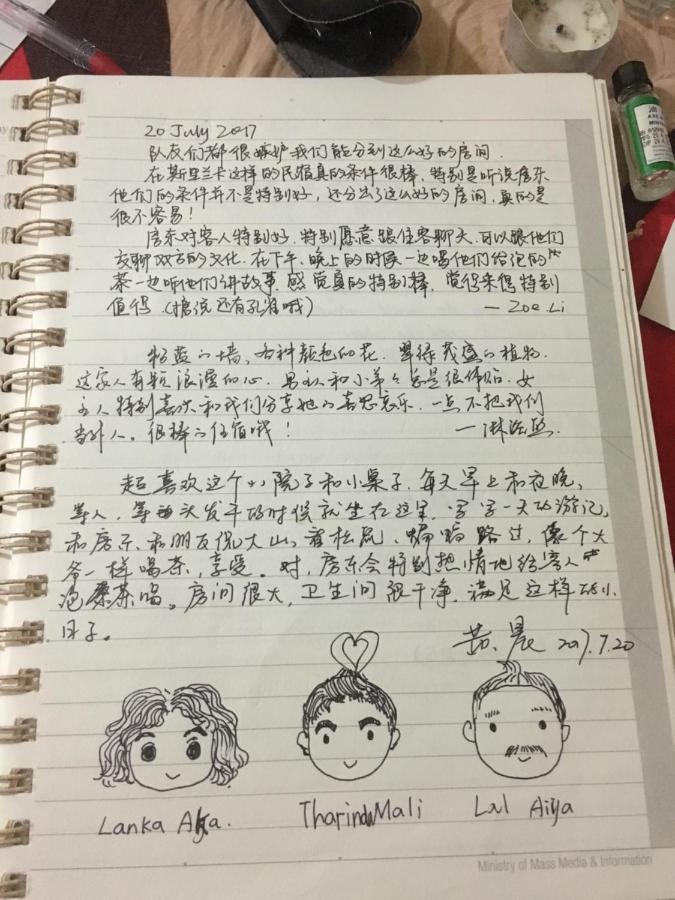 20 July 2017
队友们都很嫉妒我们能分到这么好的房间.
在斯里兰卡这样的民宿真的条件很棒,特别是听说房东
他们的条件并不是特别好,还分出了这么好的房间,真的是
很不容易!
房东对客人特别好.特别愿意跟住客聊天.可以跟他们
交聊双方的文化.在下午、晚上的时候一边喝他们给泡的
茶一边听他们讲故事,感觉真的特别棒,觉得来得特别
值得(据说还有孔雀哦) — Zoe.Li
粉蓝的墙、各种颜色的花.翠绿茂盛的植物.
这家人有粒浪漫的心.男主人和小弟々总是很体贴.女
主人特别喜欢和我们分享她的喜思哀乐.一点不把我们
当外人。很棒的住宿哦!
超喜欢这个小院子和小桌子,每天早上和夜晚,
等人,等头发干的时候就坐在这里,写写一天的游记,
和房东、和朋友侃大山,看松鼠、蝙蝠路过,像个大
爷一样喝茶,享受。对,房东会特别热情地给客人
泡茶喝。房间很大,卫生间很干净.满足这样的小
日子。
晨 2017.7.20
Lanka Akka.
Tharindu Mali
Lal Aiya
Ministry of Mass Media & Information